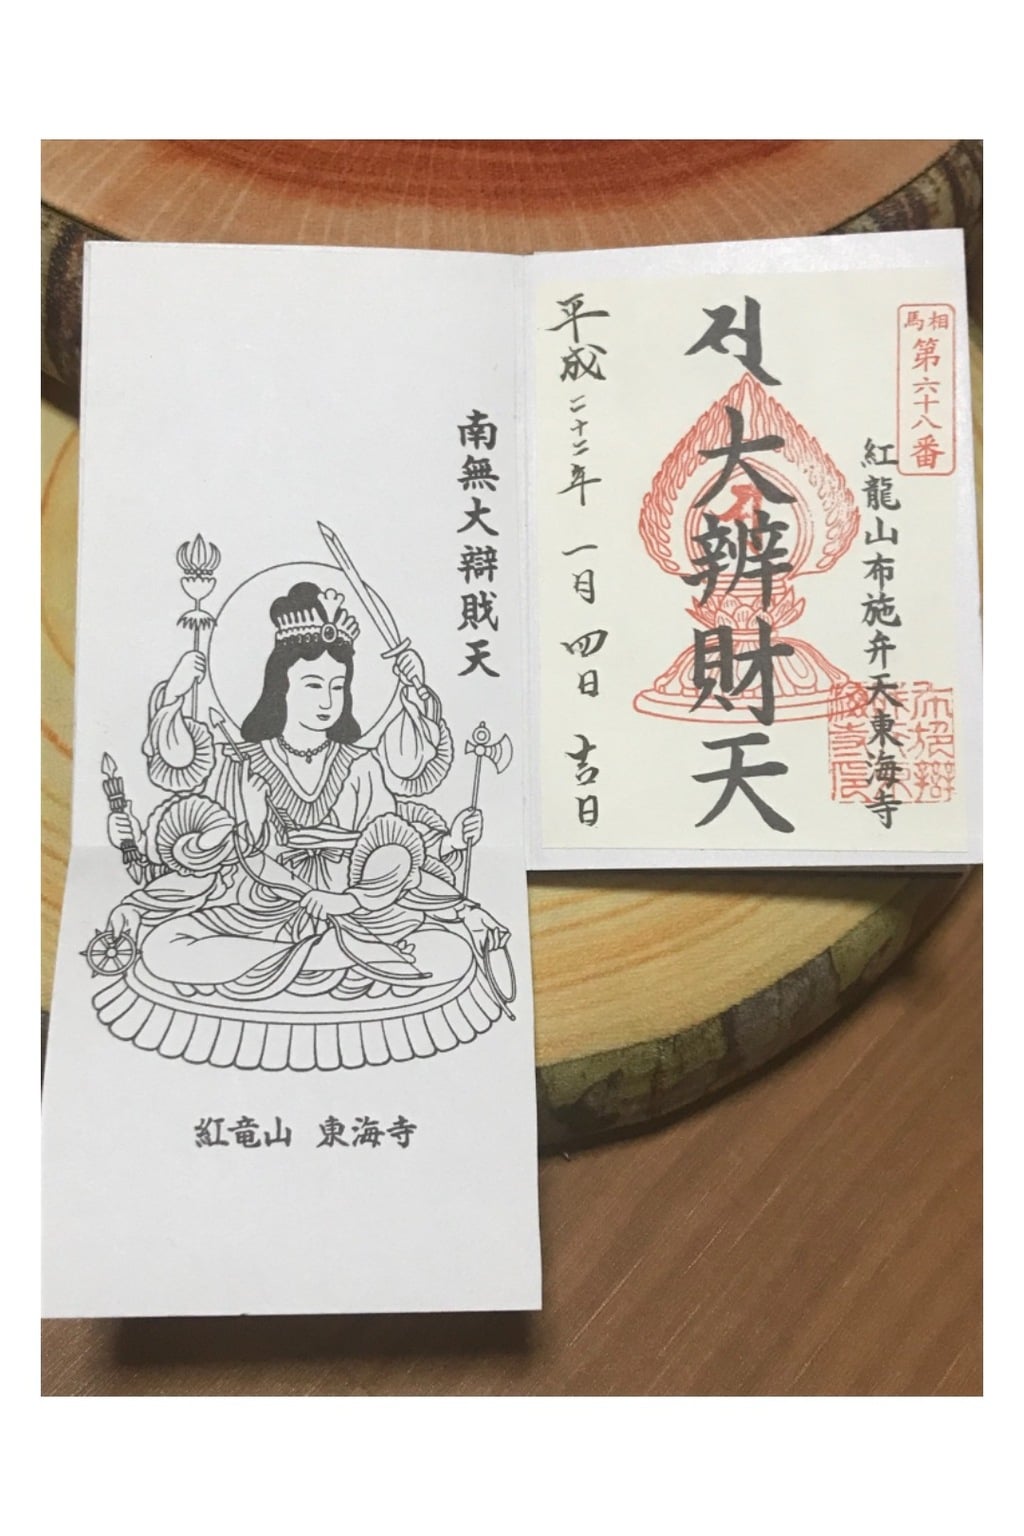 相馬
第六十八番
紅龍山布施弁天東海寺
大辨財天
平成二十二年 一月 四日 吉日
南無大辯戝天
紅竜山 東海寺